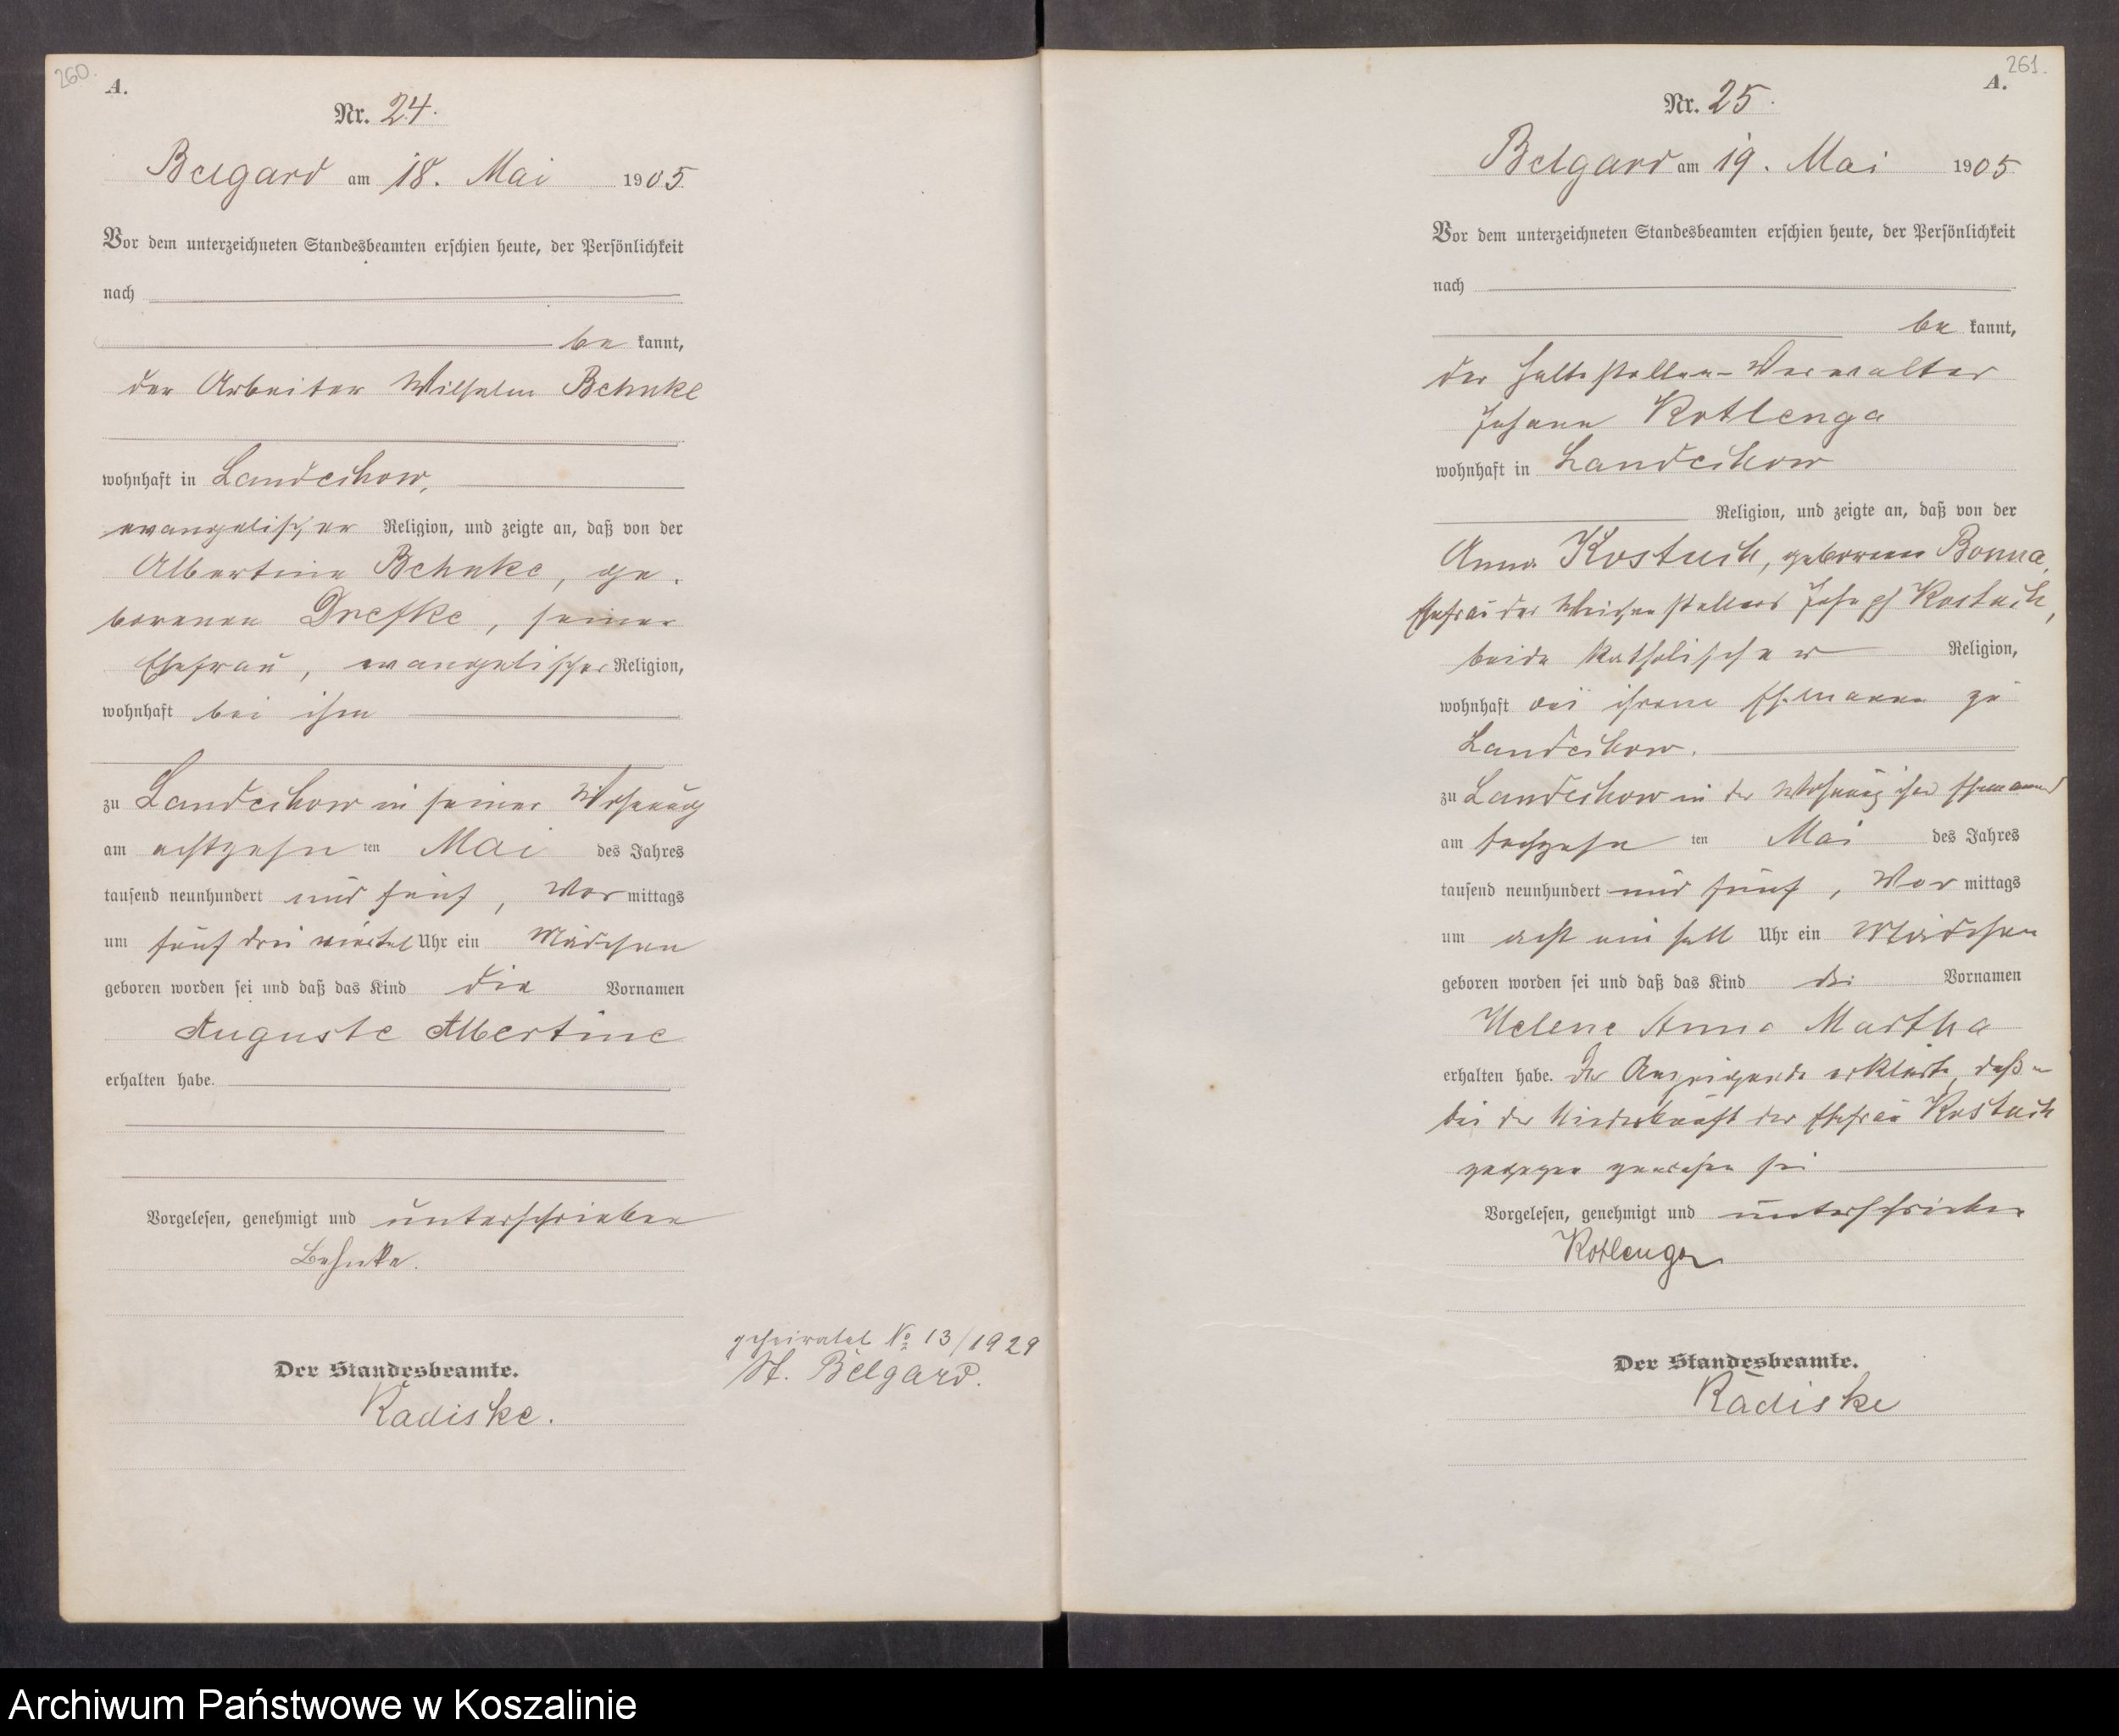 260.
A.
Nr. 24.
Belgard am 18. Mai 1905
Vor dem unterzeichneten Standesbeamten erschien heute, der Persönlichkeit
nach
be kannt,
der Arbeiter Wilhelm Behnke
wohnhaft in Landechow,
evangelischer Religion, und zeigte an, daß von der
Albertine Behnke, ge-
borenen Drefke, seiner
Ehefrau, evangelischer Religion,
wohnhaft bei ihm
zu Landechow in seiner Wohnung
am achtzehn ten Mai des Jahres
tausend neunhundert und fünf, Vor mittags
um fünf drei viertel Uhr ein Mädchen
geboren worden sei und daß das Kind die Vornamen
Auguste Albertine
erhalten habe.
Vorgelesen, genehmigt und unterschrieben
Behnke.
Der Standesbeamte.
Radiske.
geheiratet No 13/1929
St. Belgard.
261.
A.
Nr. 25.
Belgard am 19. Mai 1905
Vor dem unterzeichneten Standesbeamten erschien heute, der Persönlichkeit
nach
be kannt,
der Haltestellen-Verwalter
Johann Kotlenga
wohnhaft in Landechow
Religion, und zeigte an, daß von der
Anna Kostuch, geborenen Bonna,
Ehefrau des Weichenstellers Joseph Kostuch,
beide katholischer Religion,
wohnhaft bei ihrem Ehemann zu
Landechow.
zu Landechow in der Wohnung ihres Ehemanns
am sechzehn ten Mai des Jahres
tausend neunhundert und fünf, Vor mittags
um acht ein halb Uhr ein Mädchen
geboren worden sei und daß das Kind die Vornamen
Helene Anna Martha
erhalten habe. Der Anzeigende erklärte, daß er
bei der Niederkunft der Ehefrau Kostuch
zugegen gewesen sei
Vorgelesen, genehmigt und unterschrieben
Kotlenga
Der Standesbeamte.
Radiske
Archiwum Państwowe w Koszalinie